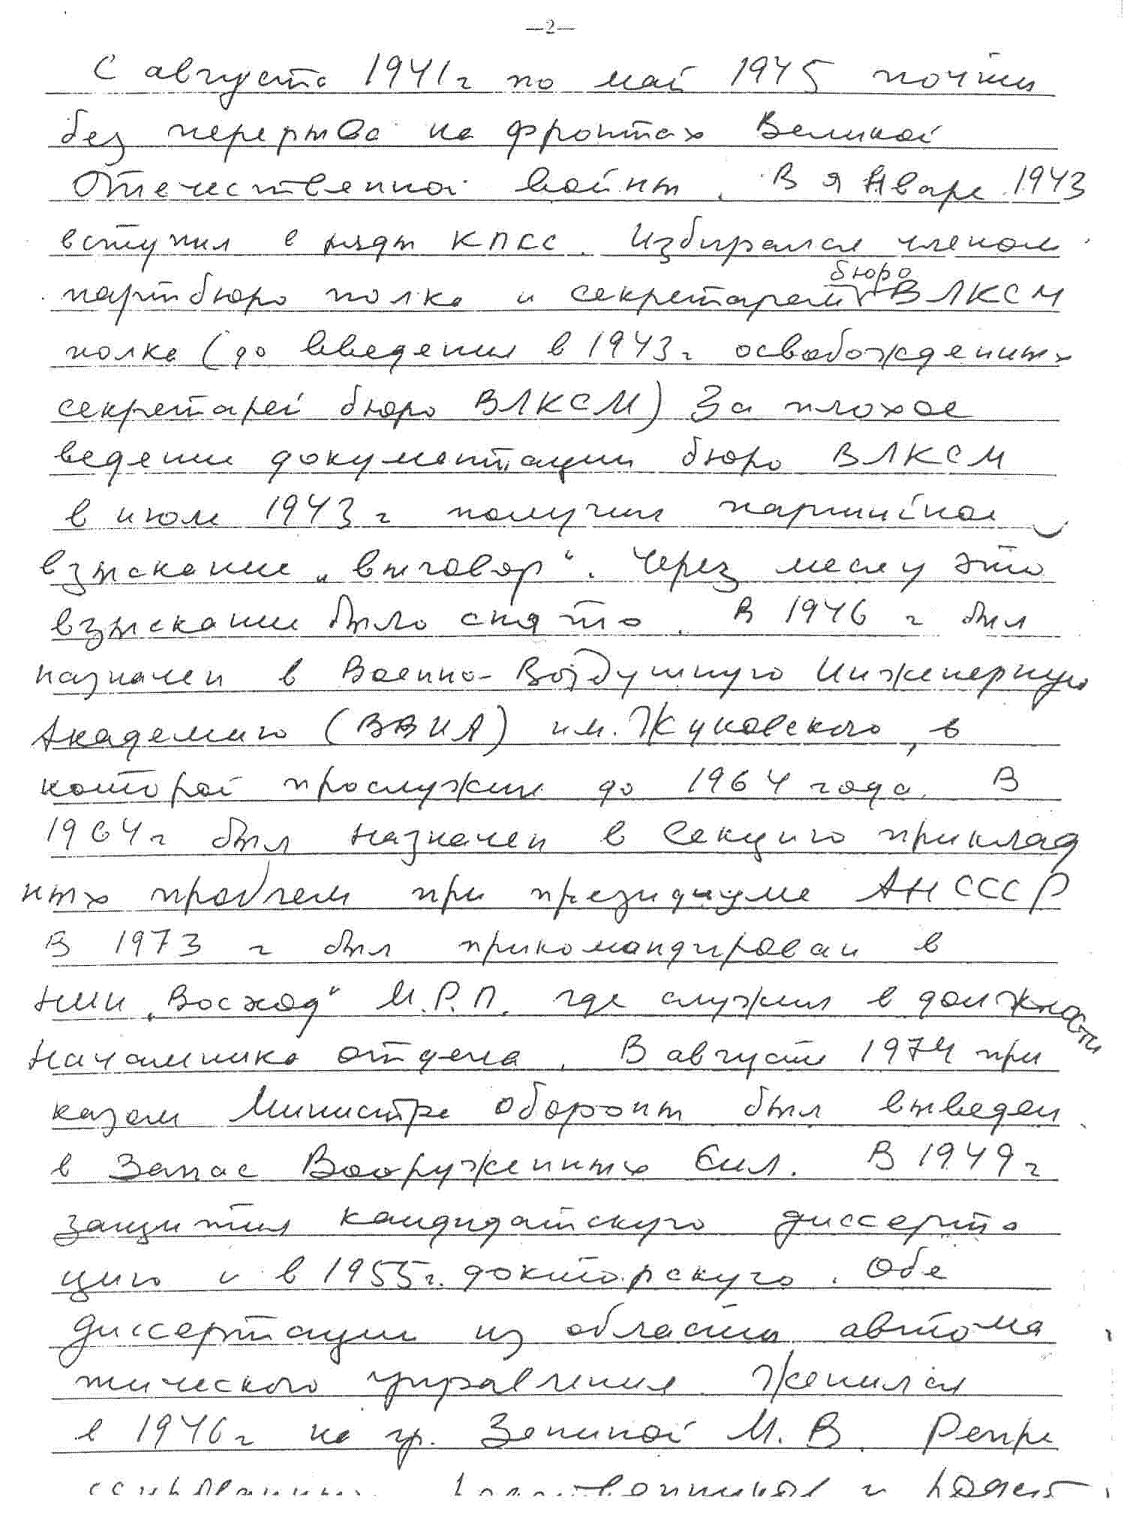 —2—
С августа 1941г по май 1945 почти
без перерыва на фронтах Великой
Отечественной войны. В январе 1943
вступил в ряды КПСС. Избирался членом
партбюро полка и секретарем бюро ВЛКСМ
полка (до введения в 1943 г освобожденных
секретарей бюро ВЛКСМ) За плохое
ведение документации бюро ВЛКСМ
в июле 1943 г получил партийное
взыскание „выговор“. Через месяц это
взыскание было снято. В 1946 г был
назначен в Военно-Воздушную Инженерную
Академию (ВВИА) им. Жуковского, в
которой прослужил до 1964 года. В
1964г был назначен в Секцию приклад
ных проблем при президиуме АН СССР
В 1973 г был прикомандирован в
НИИ „Восход“ М.Р.П. где служил в должности
начальника отдела. В августе 1974 при
казом Министра обороны был выведен
в Запас Вооруженных Сил. В 1949 г
защитил кандидатскую диссерта
цию и в 1955г. докторскую. Обе
диссертации из области автома
тического управления. Женился
в 1946г на гр. Зениной М. В. Репре
ссированных родственников и